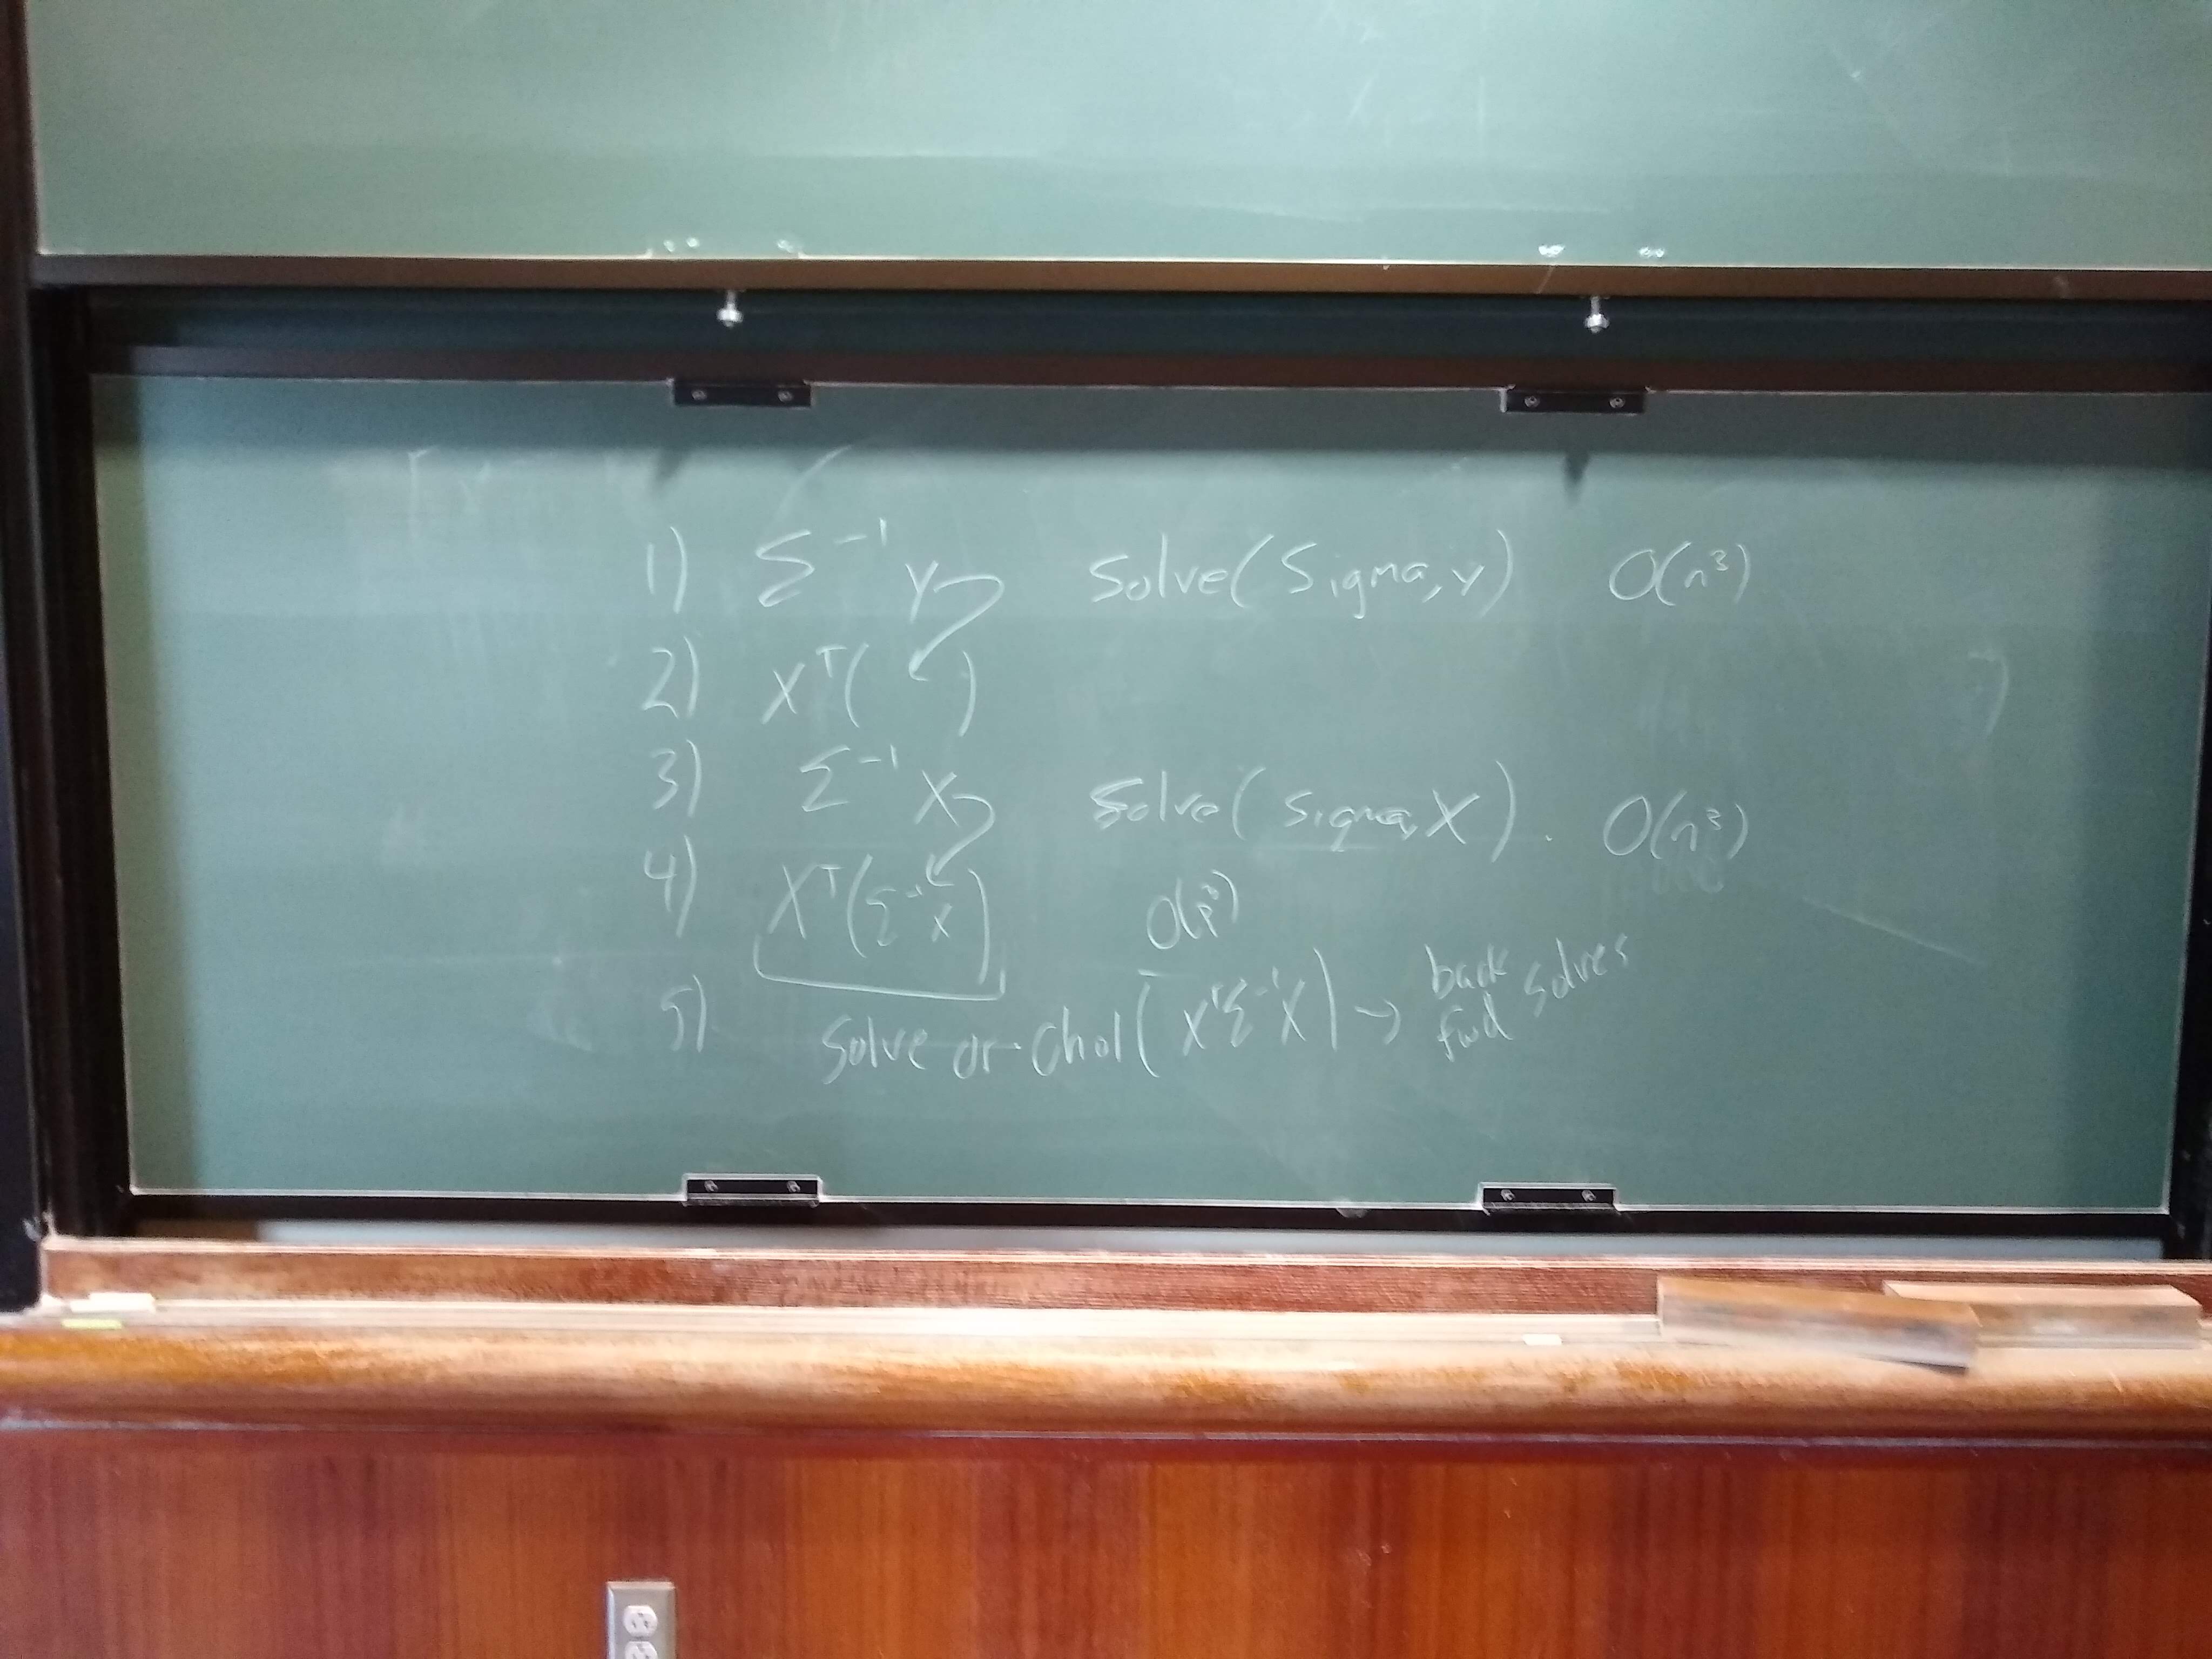 1) Σ⁻¹ y solve(Sigma, y) O(n³)
2) Xᵀ( )
3) Σ⁻¹ X solve(Sigma, X). O(n³)
4) Xᵀ(Σ⁻¹X) O(p³)
5) Solve or chol(XᵀΣ⁻¹X) → back fwd solves